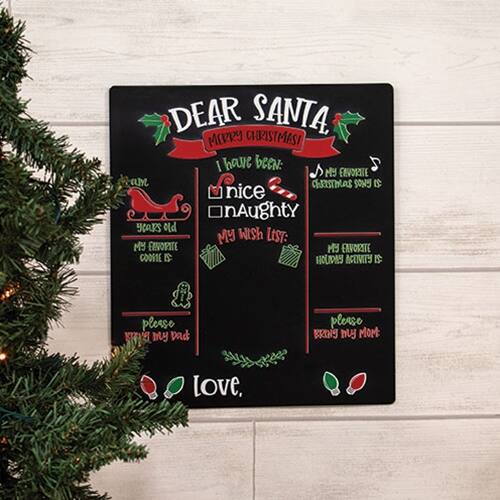 DEAR SANTA,
MERRY CHRISTMAS!
I have been:
nice
naughty
My Wish List:
am
years old
My favorite
cookie is:
please
bring my dad:
My favorite
Christmas song is:
My favorite
holiday activity is:
please
bring my mom:
Love,